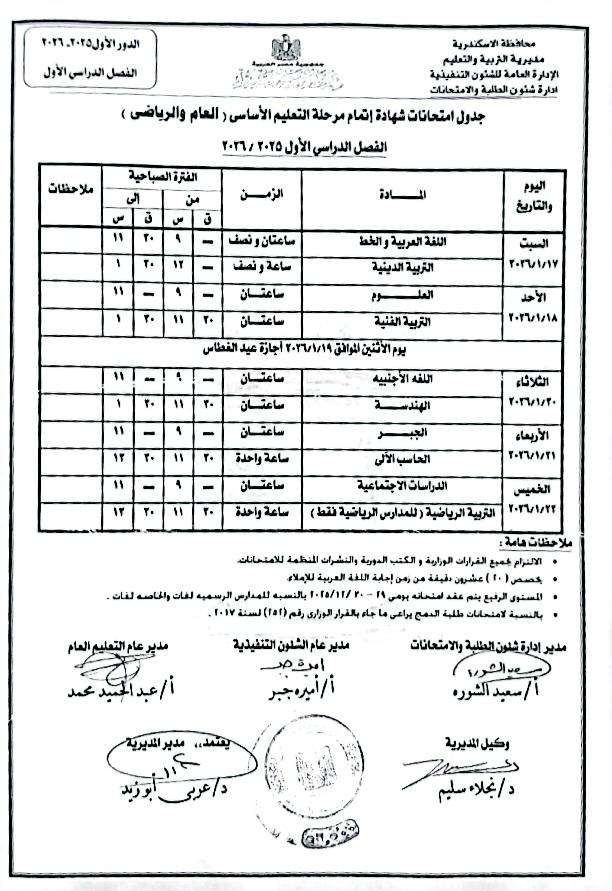 محافظة الاسكندرية
مديرية التربية والتعليم
الإدارة العامة للشئون التنفيذية
ادارة شئون الطلبة والامتحانات
جمهورية مصر العربية
الدور الأول ٢٠٢٥ـ ٢٠٢٦
الفصل الدراسي الأول
جدول امتحانات شهادة إتمام مرحلة التعليم الأساسى ( العام والرياضى )
الفصل الدراسي الأول ٢٠٢٥ / ٢٠٢٦
اليوم والتاريخ | المــادة | الزمـن | الفترة الصباحية | ملاحظات
من | إلى
ق | س | ق | س
السبت ٢٠٢٦/١/١٧ | اللغة العربية و الخط | ساعتان و نصف | ــ | ٩ | ٣٠ | ١١
التربية الدينية | ساعة و نصف | ــ | ١٢ | ٣٠ | ١
الأحد ٢٠٢٦/١/١٨ | العلـــوم | ساعتــان | ــ | ٩ | ــ | ١١
التربية الفنية | ساعتــان | ٣٠ | ١١ | ٣٠ | ١
يوم الأثنين الموافق ٢٠٢٦/١/١٩ أجازة عيد الغطاس
الثلاثاء ٢٠٢٦/١/٢٠ | اللغه الأجنبيه | ساعتــان | ــ | ٩ | ــ | ١١
الهندســة | ساعتــان | ٣٠ | ١١ | ٣٠ | ١
الأربعاء ٢٠٢٦/١/٢١ | الجبــر | ساعتــان | ــ | ٩ | ــ | ١١
الحاسب الألى | ساعة واحدة | ٣٠ | ١١ | ٣٠ | ١٢
الخميس ٢٠٢٦/١/٢٢ | الدراسات الاجتماعية | ساعتــان | ــ | ٩ | ــ | ١١
التربية الرياضية ( للمدارس الرياضية فقط ) | ساعة واحدة | ٣٠ | ١١ | ٣٠ | ١٢
ملاحظات هامة :
• الالتزام بجميع القرارات الوزارية و الكتب الدورية والنشرات المنظمة للامتحانات.
• يخصص ( ٢٠ ) عشرون دقيقة من زمن إجابة اللغة العربية للإملاء.
• المستوى الرفيع يتم عقد امتحانه يومى ٢٩ – ٣٠ /٢٠٢٥/١٢ بالنسبه للمدارس الرسميه لغات والخاصه لغات .
• بالنسبة لامتحانات طلبة الدمج يراعى ما جاء بالقرار الوزارى رقم (٢٥٢) لسنة ٢٠١٧ .
مدير إدارة شئون الطلبة والامتحانات
مدير عام الشئون التنفيذية
مدير عام التعليم العام
أ/ سعيد الشوره
أ/ أميره جبر
أ/ عبد الحميد محمد
وكيل المديرية
يعتمد،، مدير المديرية
د/ نجلاء سليم
د/ عربى أبو زيد